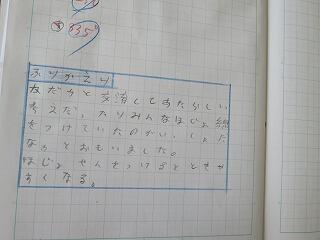 335°
ふりかえり
友だちと交流してあたらしい
考えだ、たりみんなほじょ線
をつけていたのがい、しょだ
なぁとおもいました。
ほじょせんをつけるとときか
すくなる。